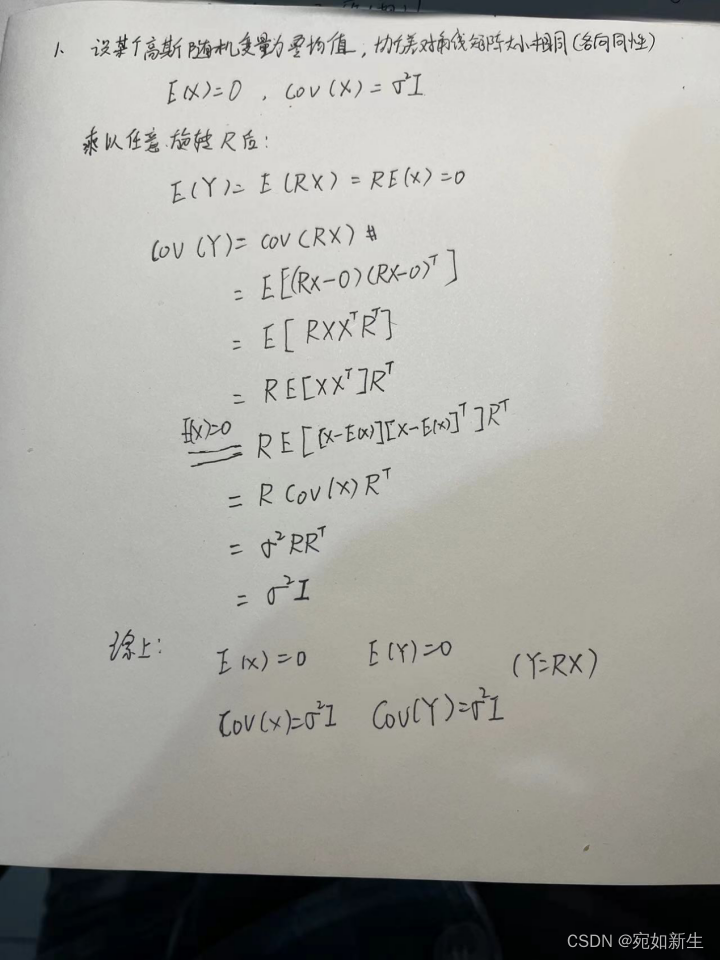 1. 设某个高斯随机变量为零均值，协方差对角线矩阵大小相同(各向同性)
E(X)=0 , COV(X) = σ²I
乘以任意旋转R后:
E(Y)= E(RX) = RE(X) =0
COV(Y)= COV(RX)
= E[(RX-0)(RX-0)ᵀ]
= E[ RXXᵀRᵀ]
= RE[XXᵀ]Rᵀ
E(X)=0
= RE[[X-E(X)][X-E(X)]ᵀ]Rᵀ
= R COV(X) Rᵀ
= σ²RRᵀ
= σ²I
综上: E(X)=0 E(Y)=0 (Y=RX)
COV(X)=σ²I COV(Y)=σ²I
CSDN @宛如新生